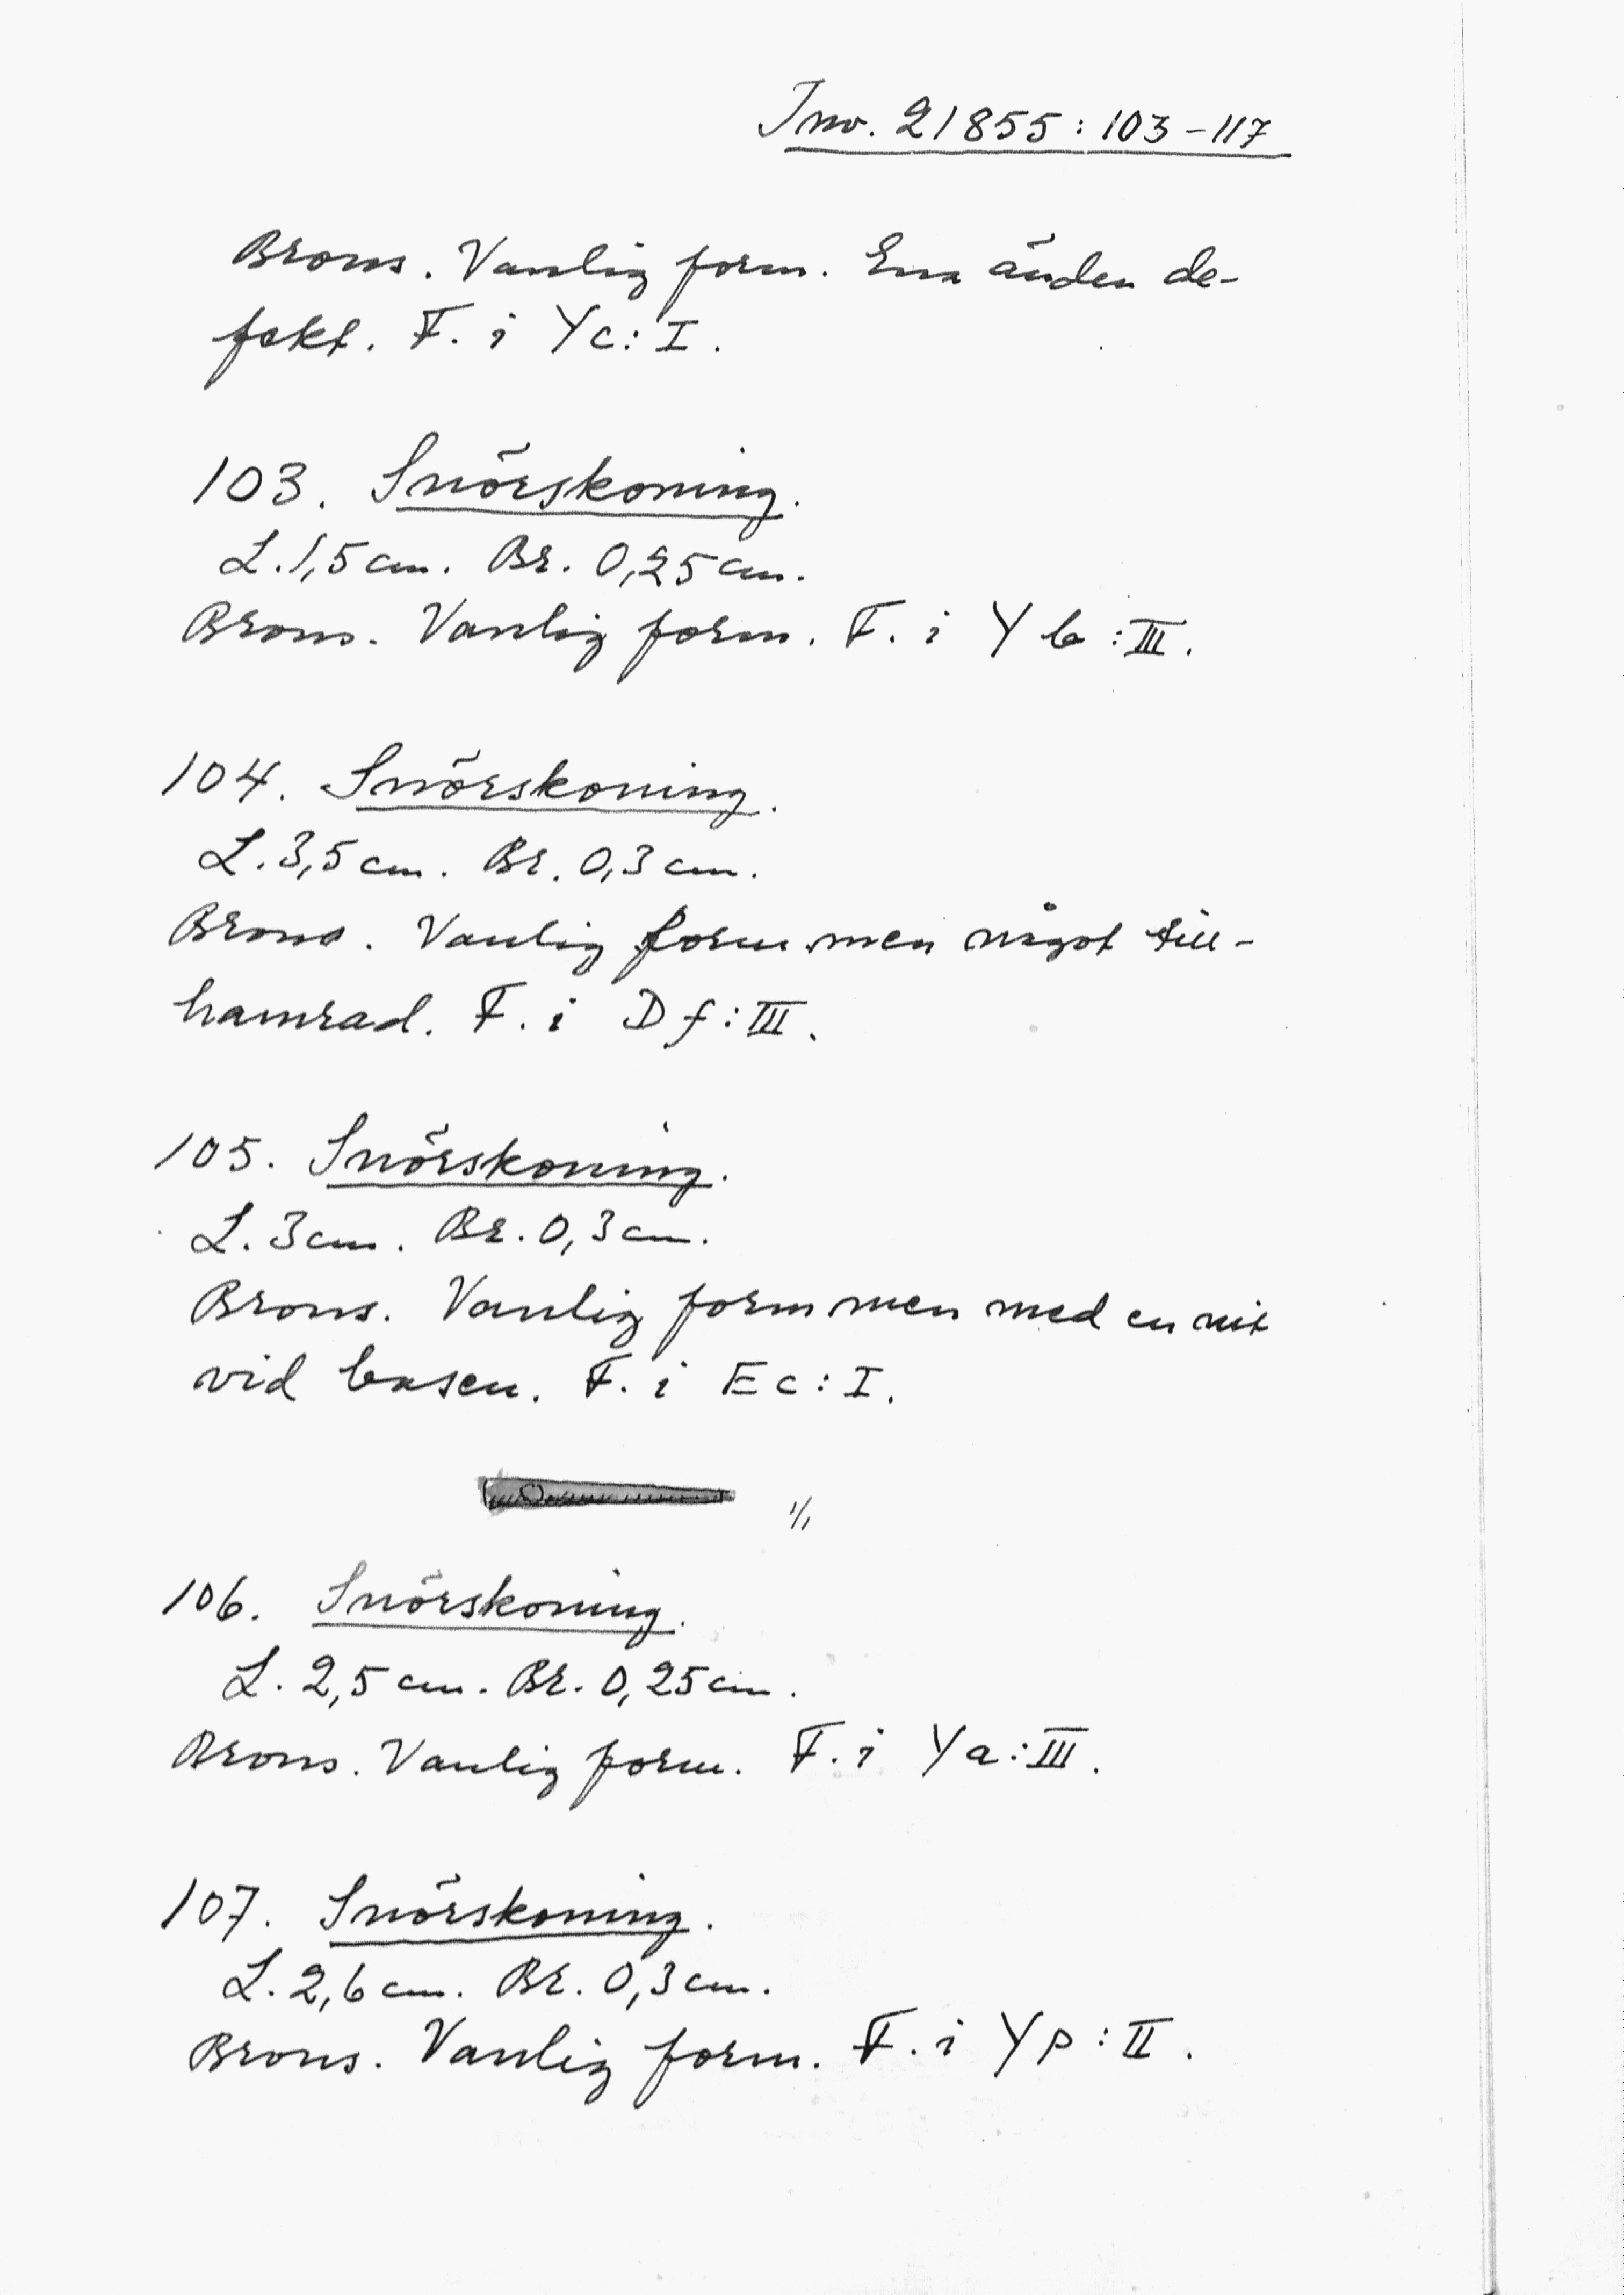 Inv. 21855:103-117
Brons. Vanlig form. Ena änden de-
fekt. F. i Yc:I.
103. Snörskoning.
L. 1,5 cm. Br. 0,25 cm.
Brons. Vanlig form. F. i Yb:III.
104. Snörskoning.
L. 3,5 cm. Br. 0,3 cm.
Brons. Vanlig form men något till-
hamrad. F. i Df:III.
105. Snörskoning.
L. 3 cm. Br. 0,3 cm.
Brons. Vanlig form men med en nit
vid basen. F. i Ec:I.
1/1
106. Snörskoning.
L. 2,5 cm. Br. 0,25 cm.
Brons. Vanlig form. F. i Ya:III.
107. Snörskoning.
L. 2,6 cm. Br. 0,3 cm.
Brons. Vanlig form. F. i Yp:II.